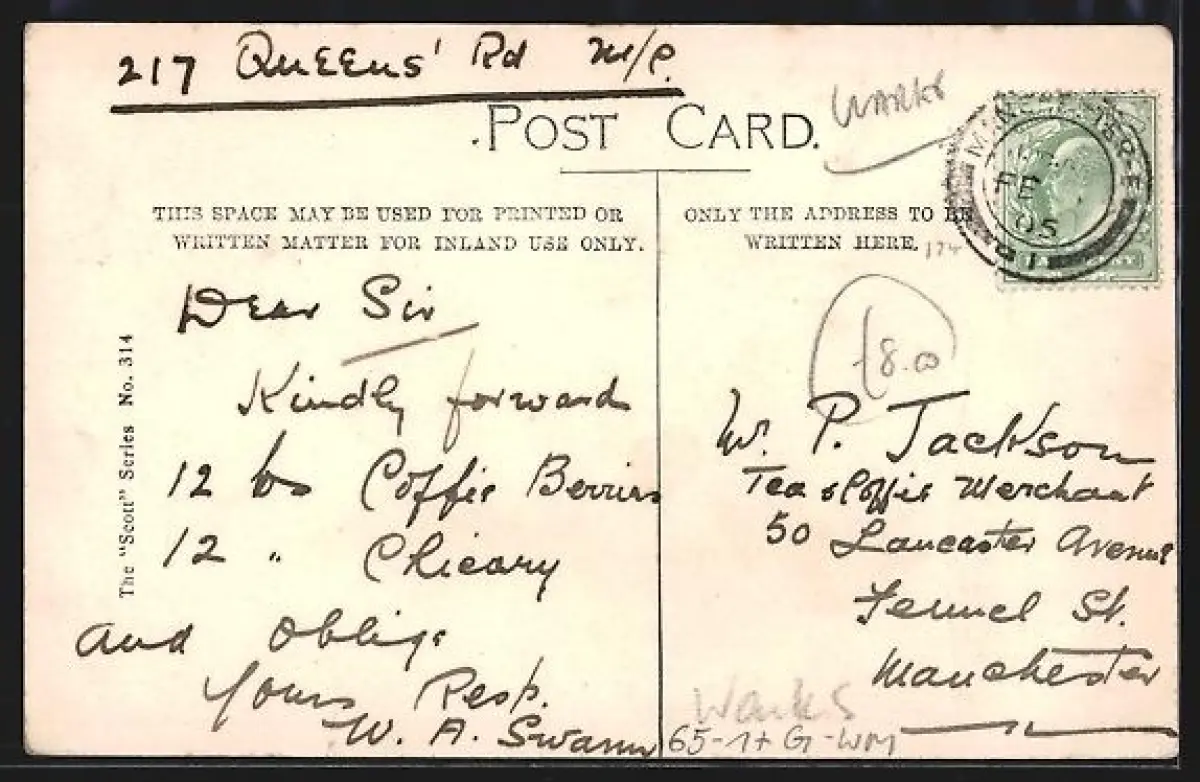 217 Queens' Rd M/C.
POST CARD.
Warks
THIS SPACE MAY BE USED FOR PRINTED OR
WRITTEN MATTER FOR INLAND USE ONLY.
ONLY THE ADDRESS TO BE
WRITTEN HERE.
MANCHESTER
FE
05
The "Scott" Series No. 314
Dear Sir
Kindly forward
12 lbs Coffie Berries
12 " Chicary
and oblige
Yours Resp.
W. A. Swann
8.00
Mr. P. Jackson
Tea & Coffie Merchant
50 Lancaster Avenue
Fennel St.
Manchester
Warks
65-1+ G-WM